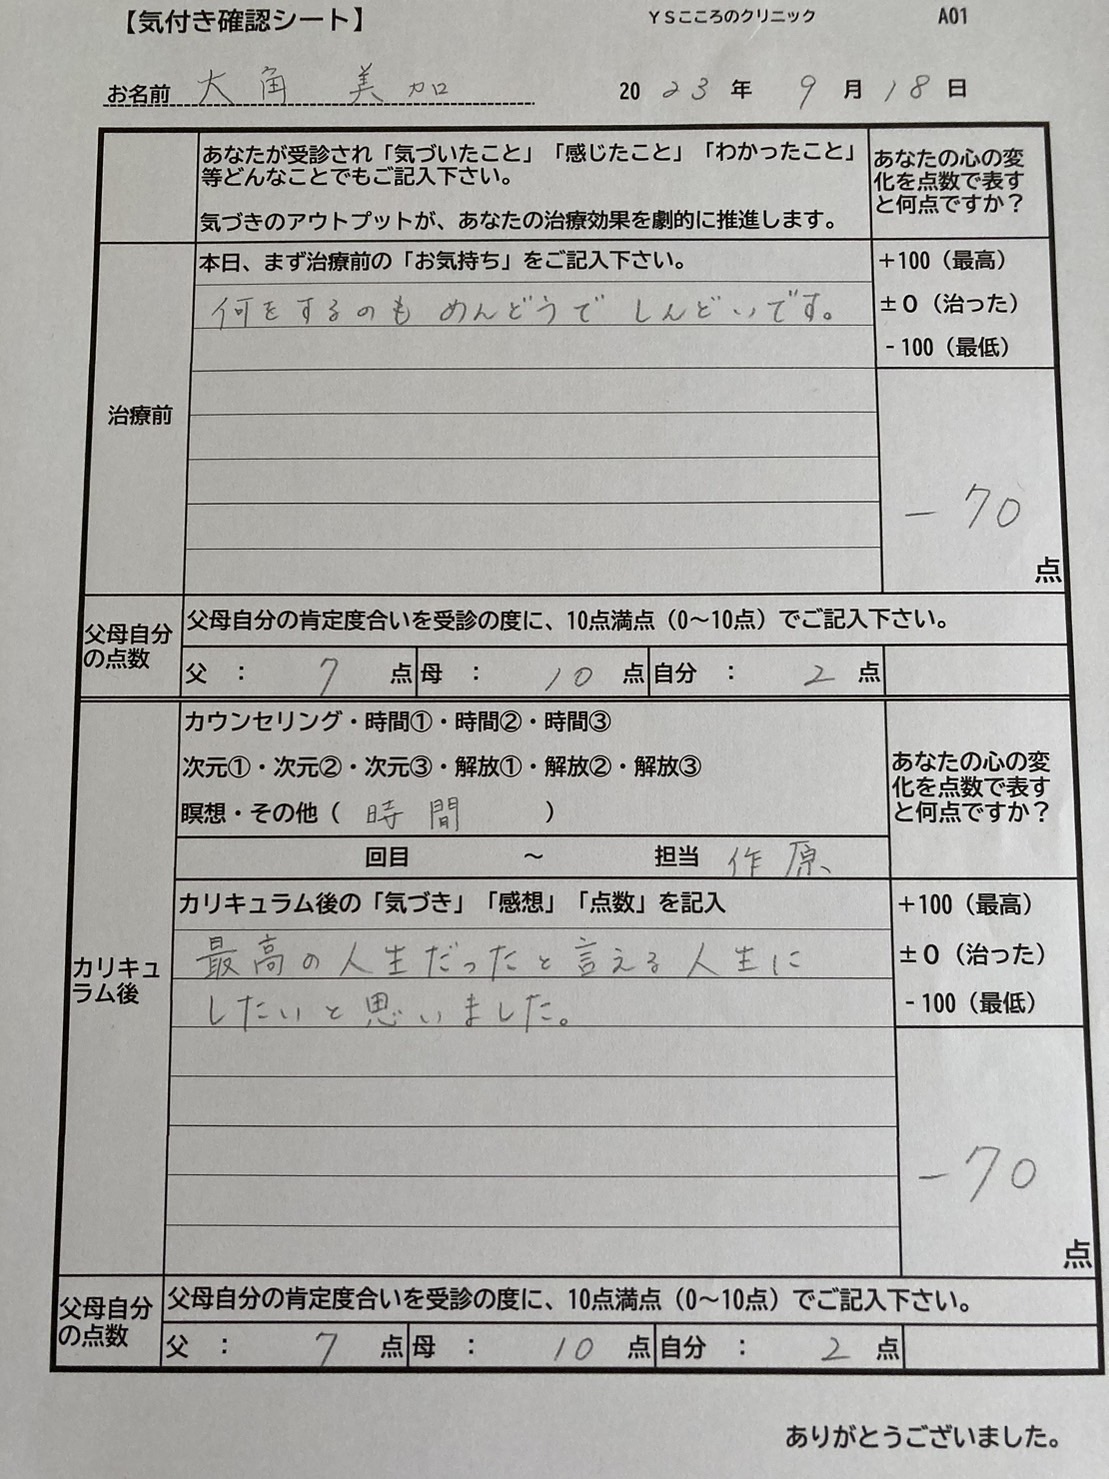 【気付き確認シート】 YSこころのクリニック A01
お名前 大角 美加 2023年 9月 18日
あなたが受診され「気づいたこと」「感じたこと」「わかったこと」
等どんなことでもご記入下さい。
気づきのアウトプットが、あなたの治療効果を劇的に推進します。
あなたの心の変
化を点数で表す
と何点ですか？
治療前
本日、まず治療前の「お気持ち」をご記入下さい。
何をするのも めんどうで しんどいです。
+100（最高）
±0（治った）
-100（最低）
-70
点
父母自分
の点数
父母自分の肯定度合いを受診の度に、10点満点（0～10点）でご記入下さい。
父 ： 7 点 母 ： 10 点 自分 ： 2 点
カリキュ
ラム後
カウンセリング・時間①・時間②・時間③
次元①・次元②・次元③・解放①・解放②・解放③
瞑想・その他（ 時間 ）
回目 ～ 担当 作原
あなたの心の変
化を点数で表す
と何点ですか？
カリキュラム後の「気づき」「感想」「点数」を記入
最高の人生だったと言える人生に
したいと思いました。
+100（最高）
±0（治った）
-100（最低）
-70
点
父母自分
の点数
父母自分の肯定度合いを受診の度に、10点満点（0～10点）でご記入下さい。
父 ： 7 点 母 ： 10 点 自分 ： 2 点
ありがとうございました。